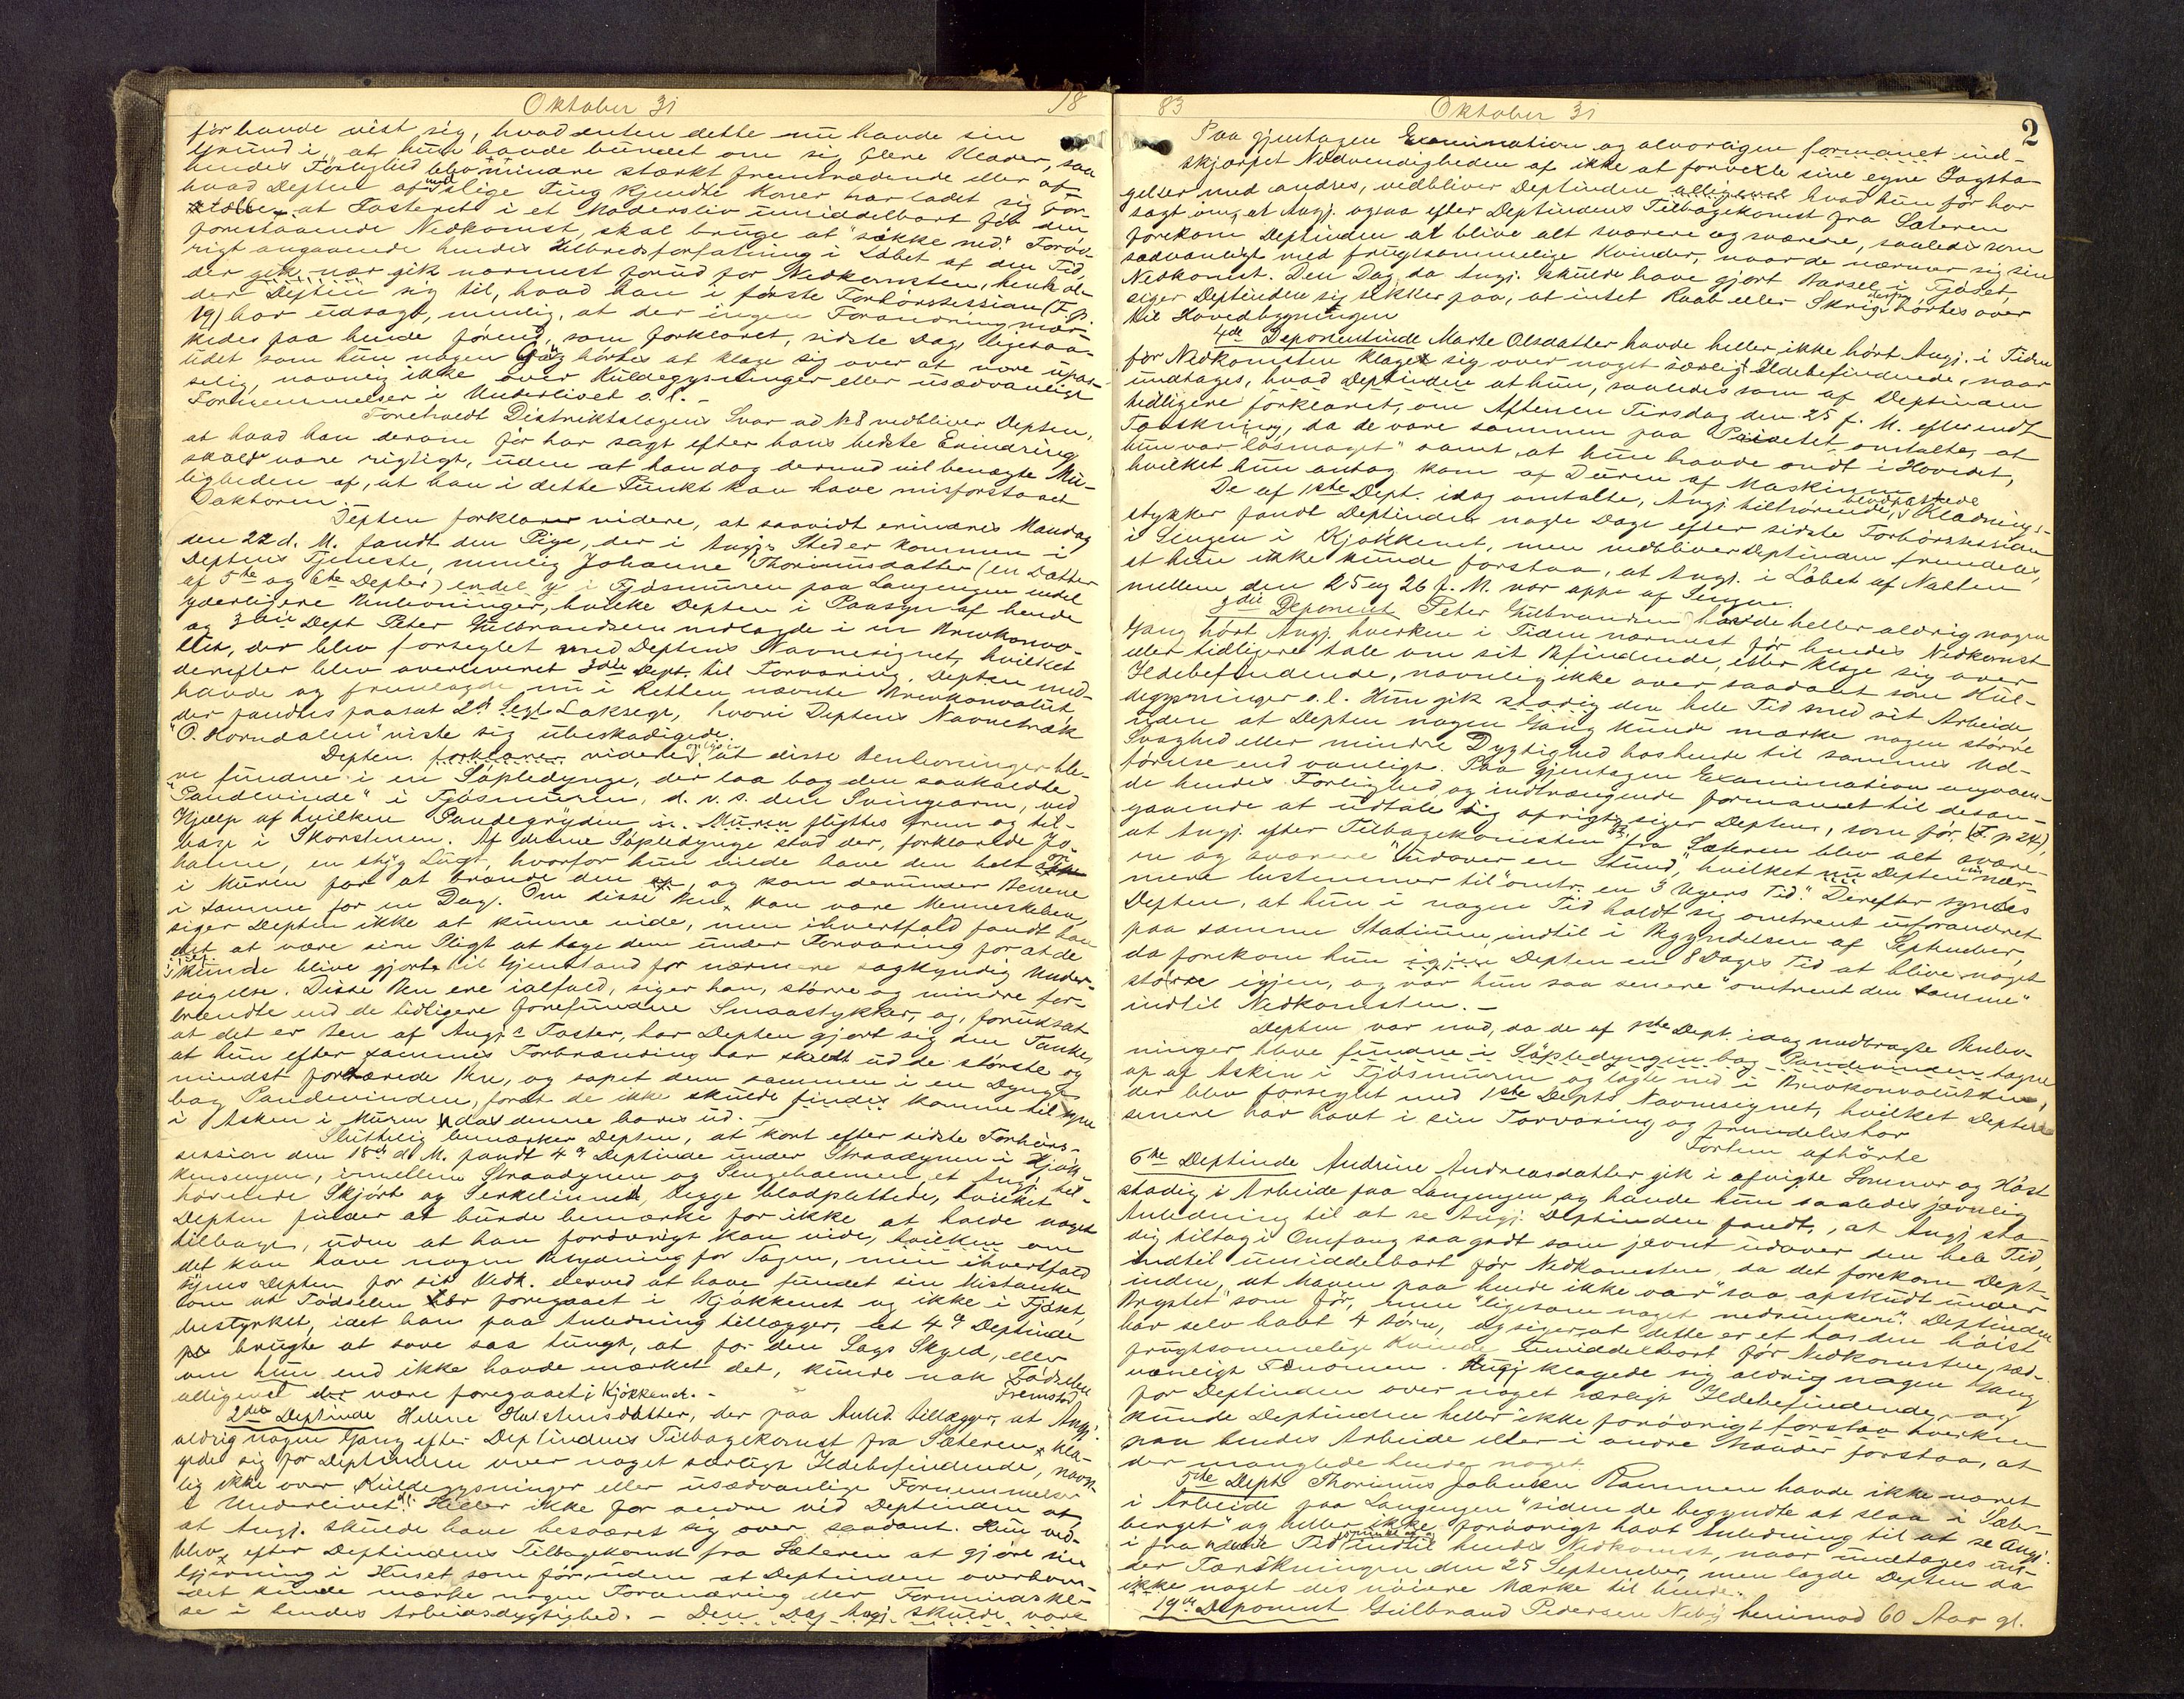 Oktober 31
78
før havde vist sig, hvad enten dette nu havde sin
Grund i, at hun havde bundet om sig flere Klæder, saa
hendes Førlighed blev mindre stærkt fremtrædende eller af
hvad Depten af med slige Ting kjendte Koner har ladet sig for-
tælle, at Fosteret i et Modersliv umiddelbart før den
forestaaende Nedkomst, skal bruge at "sække ned". Forøv-
rigt angaaende hendes Helbredsforfatning i Løbet af den Tid,
der gik nær gik nærmest forud for Nedkomsten, henhol-
der Depten sig til, hvad han i første Forhørssession (F. p.
19) har udsagt, nemlig, at der ingen Forandring mær-
kedes paa hende førend, som forklaret, sidste Dag, ligesaa-
lidet som hun nogen Gang hørtes at klage sig over at være upas-
selig, navnlig ikke over Kuldegysninger eller usædvanlige
Fornemmelser i Underlivet o. l. -
Foreholdt Distriktslægens Svar ad № 8 vedbliver Depten,
at hvad han derom før har sagt efter hans bedste Erindring
skulde være rigtigt, uden at han dog derved vil benægte Mu-
ligheden af, at han i dette Punkt kan have misforstaaet
Doktoren. -
Depten forklarer videre, at saavidt erindres Mandag
den 22 d. M. fandt den Pige, der i Angj's Sted er kommen i
Deptens Tjeneste, nemlig Johanne Thorinusdatter (en Datter
af 5te og 6te Depter) endel i Fjøsmuren paa Langengen endel
yderligere Benlevninger, hvilke Depten i Paasyn af hende
og 3die Dept Peter Gulbrandsen nedlagde i en Brevkonvo-
lut, der blev forseglet med Deptens Navnesignet, hvilket
derefter blev overleveret 3die Dept. til Forvaring. Depten med-
havde og fremlagde nu i Retten nævnte Brevkonvolut,
der fandtes paasat 2de Segl Laksegl, hvori Deptens Navnetræk
"O. Horndalen" viste sig ubeskadigede.
Depten forklarer videre at disse Benlevninger ble-
ve fundne i en Søpledynge, der laa bag den saakaldte
"Pandevinde" i Fjøsmuren, d. v. s. den Svingearm, ved
Hjælp af hvilken Pandegryden i Muren flyttes frem og til-
bage i Skorstenen. Af denne Søpledynge stod der, forklarede Jo-
hanne, en stygg Lugt, hvorfor hun vilde have den helt
i Muren for at brænde den op, og kom derunder Benene
i samme for en Dag. Om disse Ben kan være Menneskeben,
siger Depten ikke at kunne vide, men ihvertfald fandt han
det at være sin Pligt at tage dem under Forvaring for at de
kunde blive gjorte til Gjenstand for nærmere sagkyndig Under-
søgelse. Disse Ben ere ialfald, siger han, større og mindre for-
brændte end de tidligere forefundne Smaastykker, og, forudsat
at det er Ben af Angj's Foster, har Depten gjort sig den Tanke,
at hun efter sammes Forbrænding har skilt ud de største og
mindst fortærede Ben, og sopet dem sammen i en Dynge
bag Pandevinden, forat de ikke skulde findes komme tilsyne
i Asken i Muren, da denne bares ud. -
Sluttelig bemærker Depten, at kort efter sidste Forhørs-
session den 18de d. M. fandt 4de Deptinde under Straadynen i Kjøk-
kensengen, imellem Straadynen og Sengehalmen, et Angj. til-
hørende Skjørt og Serkelinned, begge blodplettede, hvilket
Depten finder at burde bemærke for ikke at holde noget
tilbage, uden at han forøvrigt kan vide, hvilken om
det kan have nogen Betydning for Sagen, men ihvertfald
synes Depten for sit Vedk. derved at have fundet sin Mistanke
om at Fødselen er foregaaet i Kjøkkenet og ikke i Fjøset,
bestyrket, idet han paa Anledning tillægger, at 4de Deptinde
brugte at sove saa tungt, at for den Sags Skyld, eller
om hun end ikke havde mærket det, kunde nok Fødselen
alligevel være foregaaet i Kjøkkenet. - Fremstod
2den Deptinde Helene Halstensdatter, der paa Anled. tillægger, at Angj.
aldrig nogen Gang efter Deptindens Tilbagekomst fra Sæteren kla-
gede sig for Deptinden over noget særligt Ildebefindende, navn-
lig ikke over Kuldegysninger eller usædvanlige Fornemmelser
i Underlivet. Heller ikke for andre ved Deptinden af,
at Angj. skulde have besværet sig over saadant. Hun ved-
blev efter Deptindens Tilbagekomst fra Sæteren at gjøre sin
Gjerning i Huset som før, uden at Deptinden overhove-
det kunde mærke nogen Forandring eller Formindskel-
se i hendes Arbeidsdygtighed. - Den Dag Angj. skulde være
83
Oktober 31
2
Paa gjentagen Examination og alvorligen formanet ind-
skjærpet Nødvendigheden af ikke at forvexle sine egne Iagtta-
gelser med andres, vedbliver Deptinden alligevel hvad hun før har
sagt om, at Angj. ogsaa efter Deptindens Tilbagekomst fra Sæteren
forekom Deptinden at blive alt sværere og sværere, saaledes som
sædvanligt med frugtsommelige Kvinder, naar de nærmer sig sin
Nedkomst. Den Dag, da Angj. skulde have gjort Barsel i Fjøset,
siger Deptinden sig sikker paa, at intet Raab eller Skrig derfra hørtes over
til Hovedbygningen
4de Deponentinde Marte Olsdatter havde heller ikke hørt Angj. i Tiden
før Nedkomsten klaget sig over noget særligt Ildebefindende, naar
undtages, hvad Deptinden at hun, saaledes som af Deptinden
tidligere forklaret, om Aftenen Tirsdag den 25 f. M. efter endt
Tærskning, da de vare sammen paa Privetet omtalte, at
hun var "løsmaget" samt, at hun havde ondt i Hovedet,
hvilket hun antog kom af Duren af Maskinen.
De af 1ste Dept. idag omtalte, Angj. tilhørende, blodplettede Klædnings-
stykker fandt Deptinden nogle Dage efter sidste Forhørssession
i Sengen i Kjøkkenet, men vedbliver Deptinden fremdeles,
at hun ikke kunde forstaa, at Angj. i Løbet af Natten
mellem den 25 og 26 f. M. var oppe af Sengen.
3die Deponent Peter Gulbrandsen havde heller aldrig nogen
Gang hørt Angj. hverken i Tiden nærmest før hendes Nedkomst
eller tidligere tale om sit Befindende, eller klage sig over
Ildebefindende, navnlig ikke over saadant som Kul-
degysninger o. l. Hun gik stadig den hele Tid med sit Arbeide,
uden at Depten nogen Gang kunde mærke nogen større
Svaghed eller mindre Dygtighed hos hende til sammes Ud-
førelse end vanligt. Paa gjentagen Examination angaaen-
de hendes Førlighed, og indtrængende formanet til desan-
gaaende at udtale sig oprigtig siger Depten, som før, (F. p. 24),
at Angj. efter Tilbagekomsten fra Sæteren blev alt svære-
re og sværere "udover en Stund", hvilket nu Depten nær-
mere bestemmer til "omtr. en 3 Ugers Tid". Derefter syntes
Depten, at hun i nogen Tid holdt sig omtrent uforandret
paa samme Stadium, indtil i Begyndelsen af September,
da forekom hun igjen Depten en 8 Dages Tid at blive noget
større igjen, og var hun saa senere "omtrent den samme"
indtil Nedkomsten. -
Depten var med, da de af 1ste Dept. idag medbragte Benlev-
ninger bleve fundne i Søpledyngen bag Pandevinden tagne
op af Asken i Fjøsmuren og lagte ned i Brevkonvolutten,
der blev forseglet med 1ste Depts Navnesignet, hvilket Depten
senere har havt i sin Forvaring og
Forten afhørte
6te Deptinde Andrine Andreasdatter gik i afvigte Sommer og Høst
stadig i Arbeide paa Langengen og havde hun saaledes jævnlig
Anledning til at se Angj. Deptinden fandt, at Angj. sta-
dig tiltog i Omfang saagodt som jævnt udover den hele Tid,
indtil umiddelbart før Nedkomsten, da det forekom Dept-
inden, at Maven paa hende ikke var "saa opskudt under
Brystet" som før, men "ligesom noget nedsunken". Deptinden
har selv havt 4 Børn, og siger, at dette er et hos den høist
frugtsommelige Kvinde umiddelbart før Nedkomsten sæd-
vanligt Fænomen. Angj. klagede sig aldrig nogen Gang
for Deptinden over noget særligt Ildebefindende, og
kunde Deptinden heller ikke forøvrigt forstaa hverken
paa hendes Arbeide eller i andre Maader forstaa, at
der manglede hende noget.
5te Dept. Thorinus Johnsen Rammen havde ikke været
i Arbeide paa Langengen "siden de begyndte at slaa i Sæter-
berget" og heller ikke forøvrigt havt Anledning til at se Angj.
i fra Tid indtil hendes Nedkomst, naar undtages un-
der Tærskningen den 25 September, men lagde Depten da
ikke noget des nøiere Mærke til hende.
19de Deponent Gulbrand Pedersen Neby henimod 60 Aar gl.